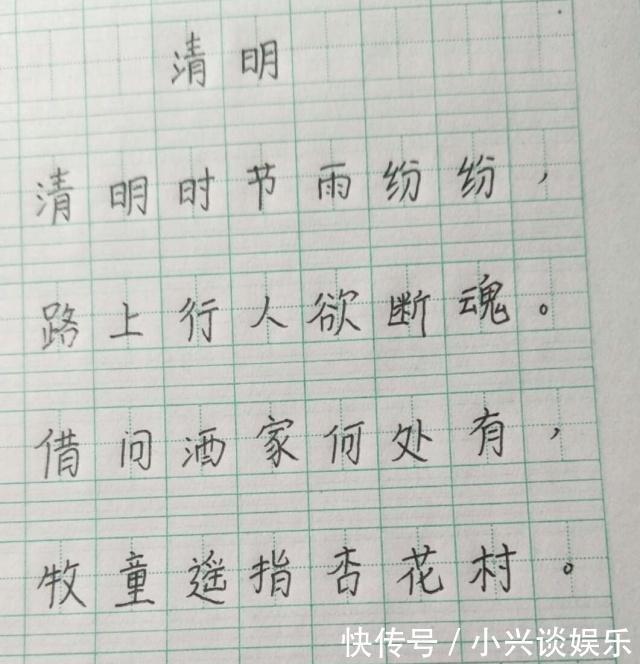 清明
清明时节雨纷纷，
路上行人欲断魂。
借问酒家何处有，
牧童遥指杏花村。
快传号 / 小兴谈娱乐